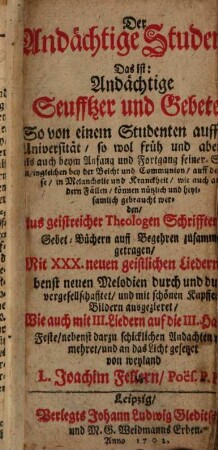 Der
Andächtige Studen
Das ist:
Andächtige
Seufftzer und Gebete
So von einem Studenten auff
Universität / so wol früh und aben
als auch beym Anfang und Fortgang seiner
/ingleichen bey der Beicht und Communion / auff de
se / in Melancholie und Kranckheit / wie auch an
dern Fällen / können nützlich und heyl-
samlich gebraucht wer-
den/
Aus geistreicher Theologen Schrifften
Gebet-Büchern auff Begehren zusamm
getragen/
Mit XXX. neuen geistlichen Liedern
benst neuen Melodien durch und du
vergesellschafftet / und mit schönen Kupffe
Bildern ausgezieret /
Wie auch mit III. Liedern auf die III. Ha
Feste / nebenst darzu schicklichen Andachten
mehret / und an das Licht gesetzet
von weyland
L. Joachim Fellern / Poës. P.
Leipzig /
Verlegts Johann Ludwig Gleditsc
und M. G. Weidmanns Erben.
Anno 1702.